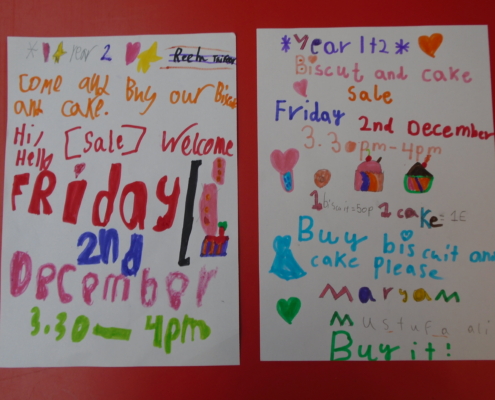 Year 2
Come and Buy our Biscut
and cake.
Hi,
Hello
[Sale] Welcome
FRiday
2nd
December
3.30 — 4pm
*Year 1+2*
Biscut and cake
sale
Friday 2nd December
3.30pm-4pm
1 biscuit=50p 1 cake = 1£
Buy biscuit and
cake please
Maryam
Mustufa ali
Buy it!